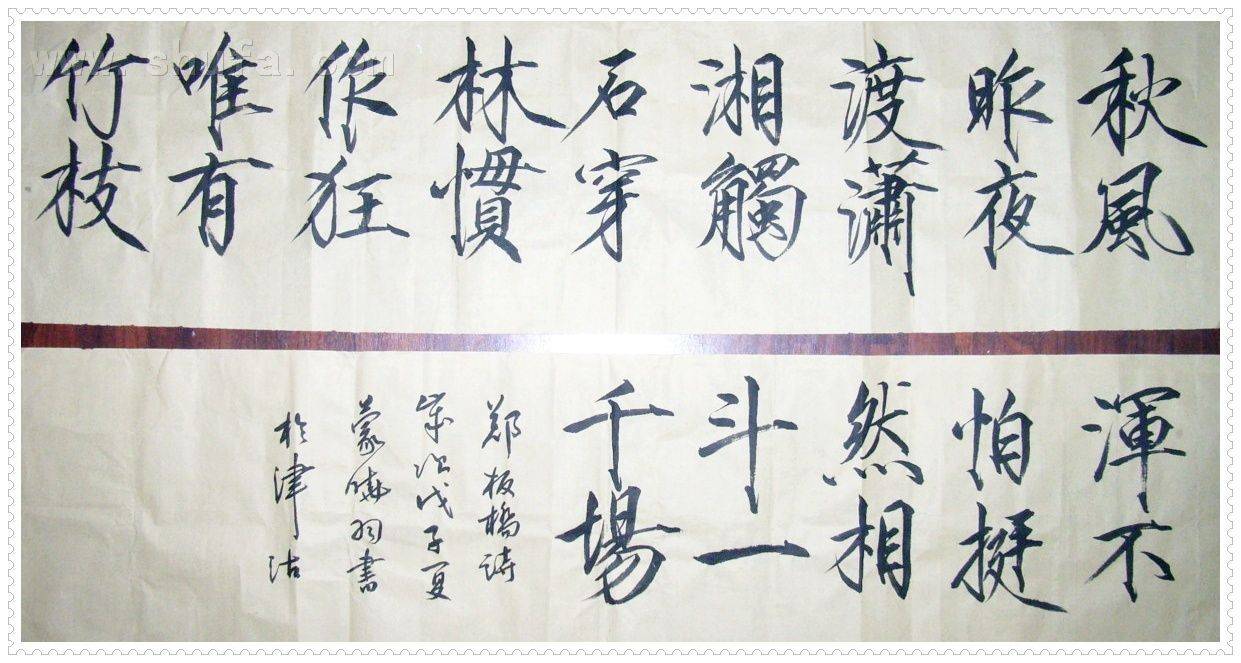 www.shufa.com
秋風
昨夜
渡瀟
湘觸
石穿
林慣
作狂
唯有
竹枝
渾不
怕挺
然相
斗一
千場
郑板橋詩
歲次戊子夏
蒙羽書
於津沽